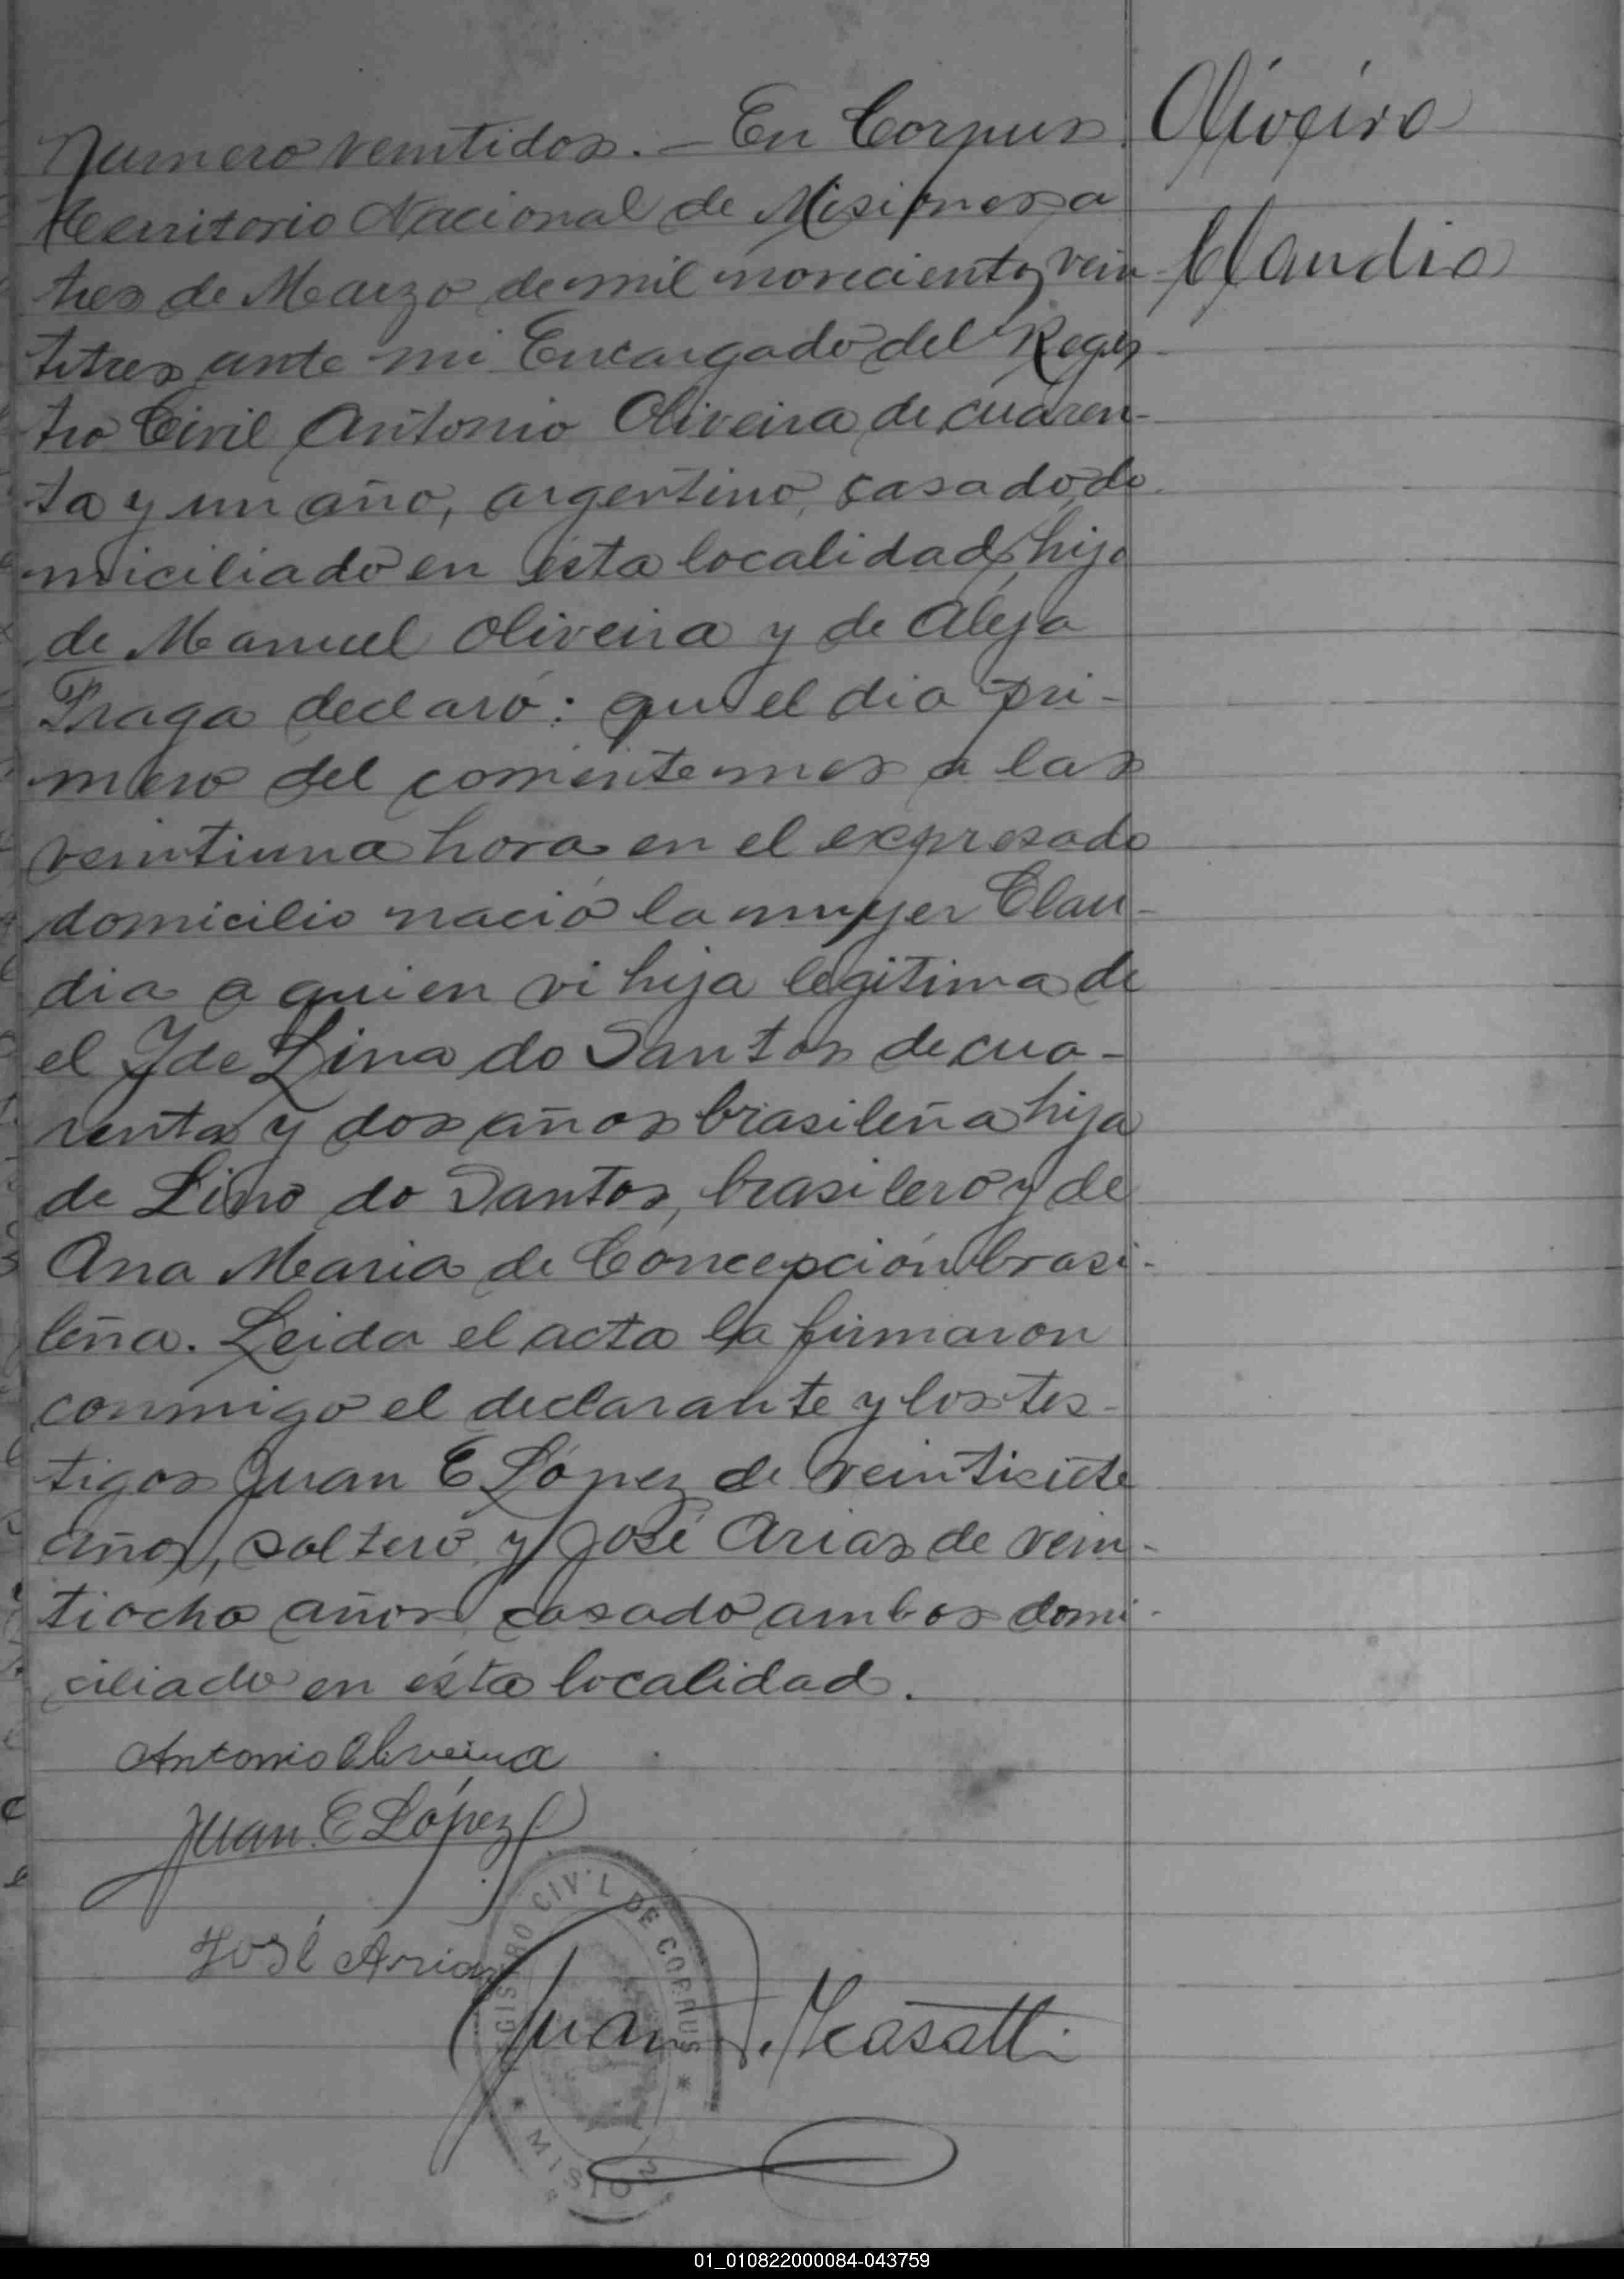 Numero veintidos. — En Corpus
Territorio Nacional de Misiones a
tres de Marzo de mil novecientos vein
titres ante mi Encargado del Regis
tro Civil Antonio Oliveira de cuaren-
ta y un año, argentino, casado, do
miciliado en ésta localidad, hijo
de Manuel Oliveira y de Aleja
Fraga declaró: que el dia pri-
mero del corriente mes a las
veintiuna hora en el expresado
domicilio nació la mujer Clau-
dia a quien vi hija legitima de
el y de Lina do Santos de cua-
renta y dos años brasileña hija
de Lino do Santos, brasilero y de
Ana Maria de Concepción brasi-
leña. Leida el acta la firmaron
conmigo el declarante y los tes-
tigos Juan E López de veintisiete
años, soltero y José Arias de vein-
tiocho años casado ambos domi-
ciliado en ésta localidad.
Antonio Oliveira
Juan E López
José Arias
Juan
REGISTRO CIVIL DE CORPUS
* MISIO *
Oliveira
Claudia
01_010822000084-043759